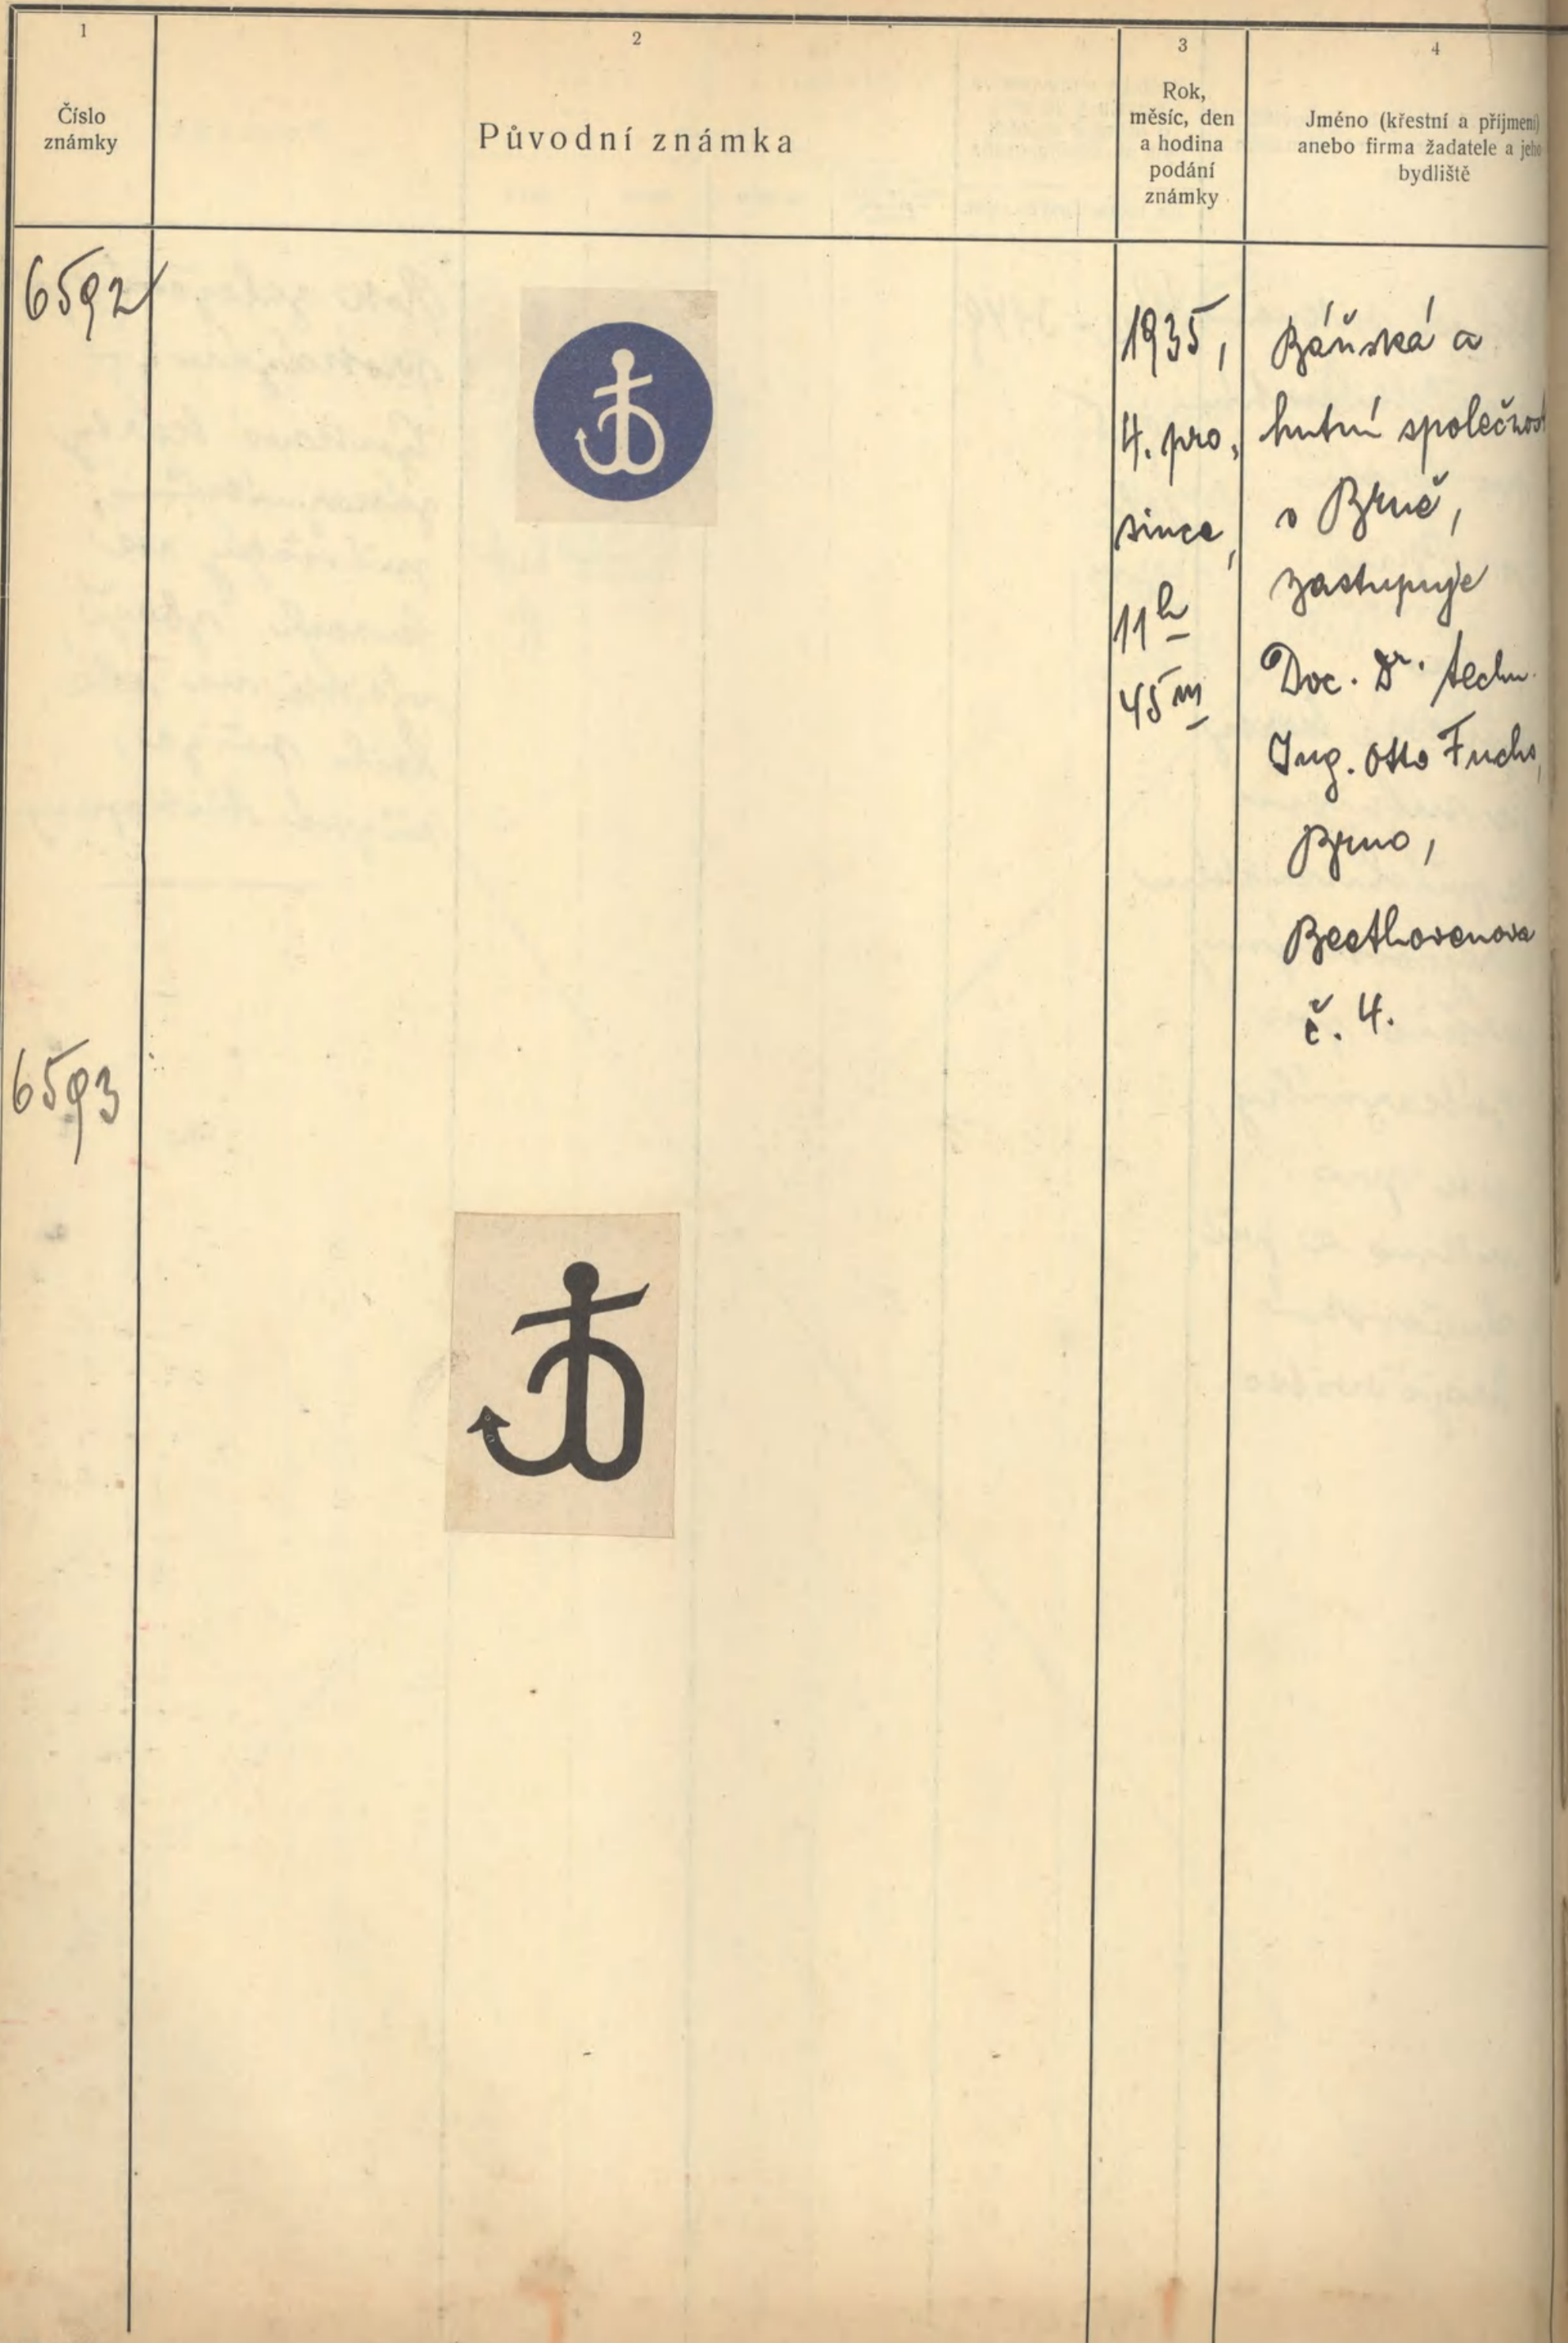 1
Číslo
známky
2
Původní známka
3
Rok,
měsíc, den
a hodina
podání
známky
4
Jméno (křestní a příjmení)
anebo firma žadatele a jeho
bydliště
6592
1935,
4. pro-
since,
11h
45m
Báňská a
hutní společnost
v Brně,
zastupuje
Doc. Dr. techn.
Ing. Otto Fuchs,
Brno,
Beethovenova
č. 4.
6593